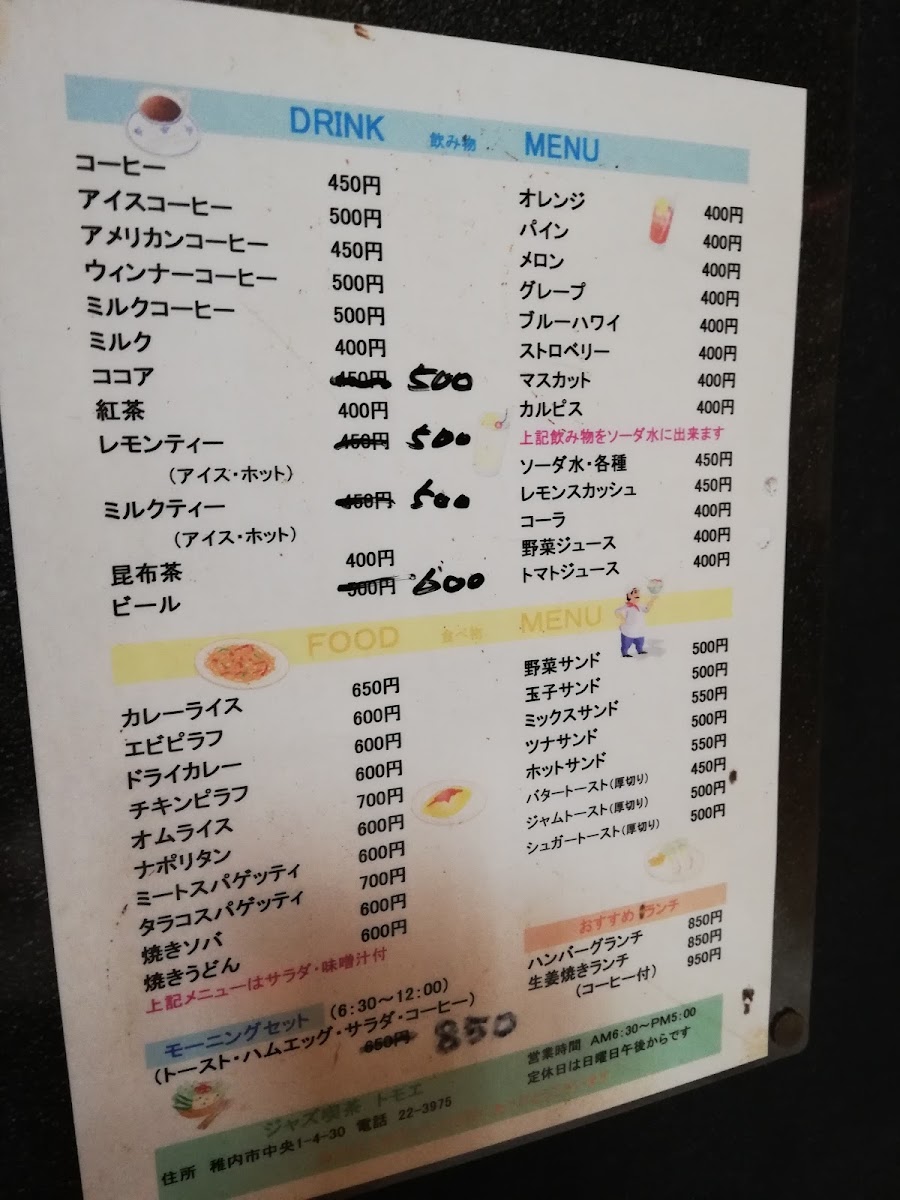 DRINK 飲み物 MENU
コーヒー 450円
アイスコーヒー 500円
アメリカンコーヒー 450円
ウィンナーコーヒー 500円
ミルクコーヒー 500円
ミルク 400円
ココア 450円 500
紅茶 400円
レモンティー 450円 500
（アイス・ホット）
ミルクティー 450円 500
（アイス・ホット）
昆布茶 400円
ビール 500円 600
オレンジ 400円
パイン 400円
メロン 400円
グレープ 400円
ブルーハワイ 400円
ストロベリー 400円
マスカット 400円
カルピス 400円
上記飲み物をソーダ水に出来ます
ソーダ水・各種 450円
レモンスカッシュ 450円
コーラ 400円
野菜ジュース 400円
トマトジュース 400円
FOOD 食べ物 MENU
カレーライス 650円
エビピラフ 600円
ドライカレー 600円
チキンピラフ 600円
オムライス 700円
ナポリタン 600円
ミートスパゲッティ 600円
タラコスパゲッティ 700円
焼きソバ 600円
焼きうどん 600円
上記メニューはサラダ・味噌汁付
モーニングセット （6:30～12:00）
（トースト・ハムエッグ・サラダ・コーヒー）
650円 850
野菜サンド 500円
玉子サンド 500円
ミックスサンド 550円
ツナサンド 500円
ホットサンド 550円
バタートースト（厚切り） 450円
ジャムトースト（厚切り） 500円
シュガートースト（厚切り） 500円
おすすめランチ
ハンバーグランチ 850円
生姜焼きランチ 850円
（コーヒー付） 950円
ジャズ喫茶 トモエ
住所 稚内市中央1-4-30 電話 22-3975
営業時間 AM6:30～PM5:00
定休日は日曜日午後からです